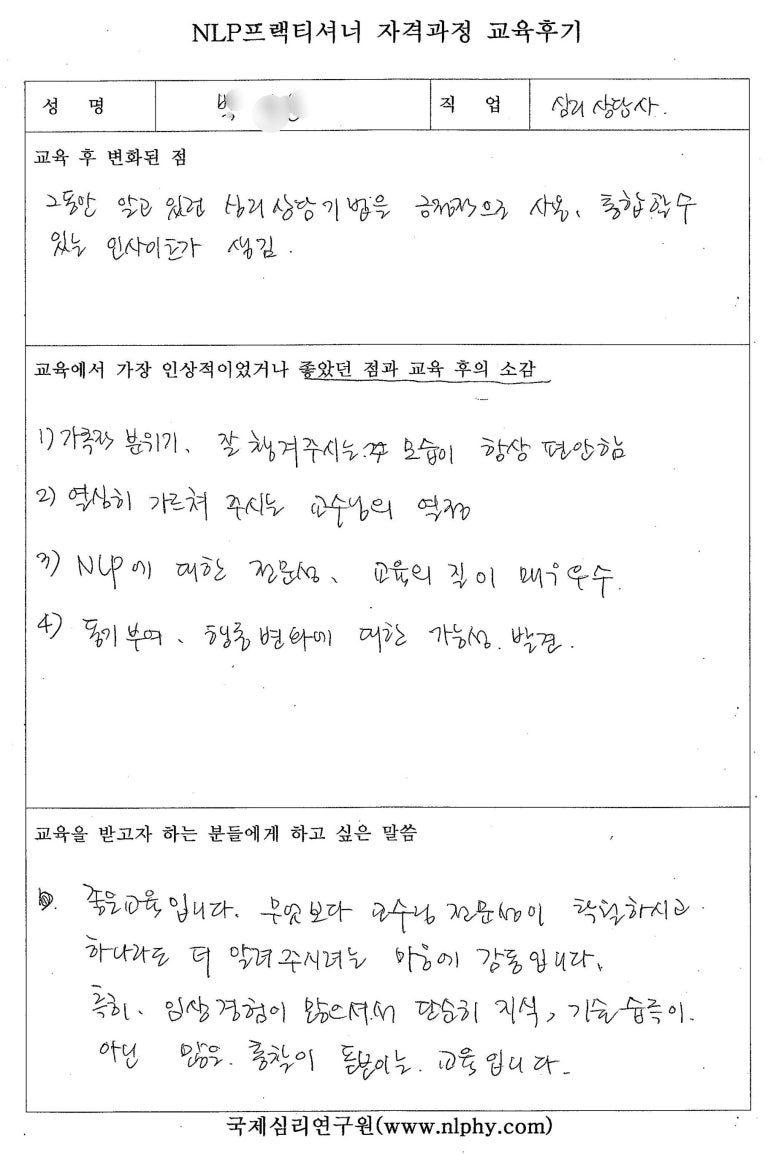 NLP프랙티셔너 자격과정 교육후기
성 명 박 직 업 심리상담사.
교육 후 변화된 점
그동안 알고 있던 심리상담기법을 긍정적으로 사용, 통합할 수
있는 인사이트가 생김.
교육에서 가장 인상적이었거나 좋았던 점과 교육 후의 소감
1) 가족적 분위기, 잘 챙겨주시는 모습이 항상 편안함
2) 열심히 가르쳐 주시는 교수님의 열정
3) NLP에 대한 전문성, 교육의 질이 매우 우수.
4) 동기부여, 행동변화에 대한 가능성. 발견.
교육을 받고자 하는 분들에게 하고 싶은 말씀
좋은교육입니다. 무엇보다 교수님 전문성이 탁월하시고
하나라도 더 알려주시려는 마음에 감동입니다.
특히, 임상경험이 많으셔서 단순히 지식, 기술 습득이.
아닌 많은. 통찰이 돋보이는. 교육입니다.
국제심리연구원(www.nlphy.com)